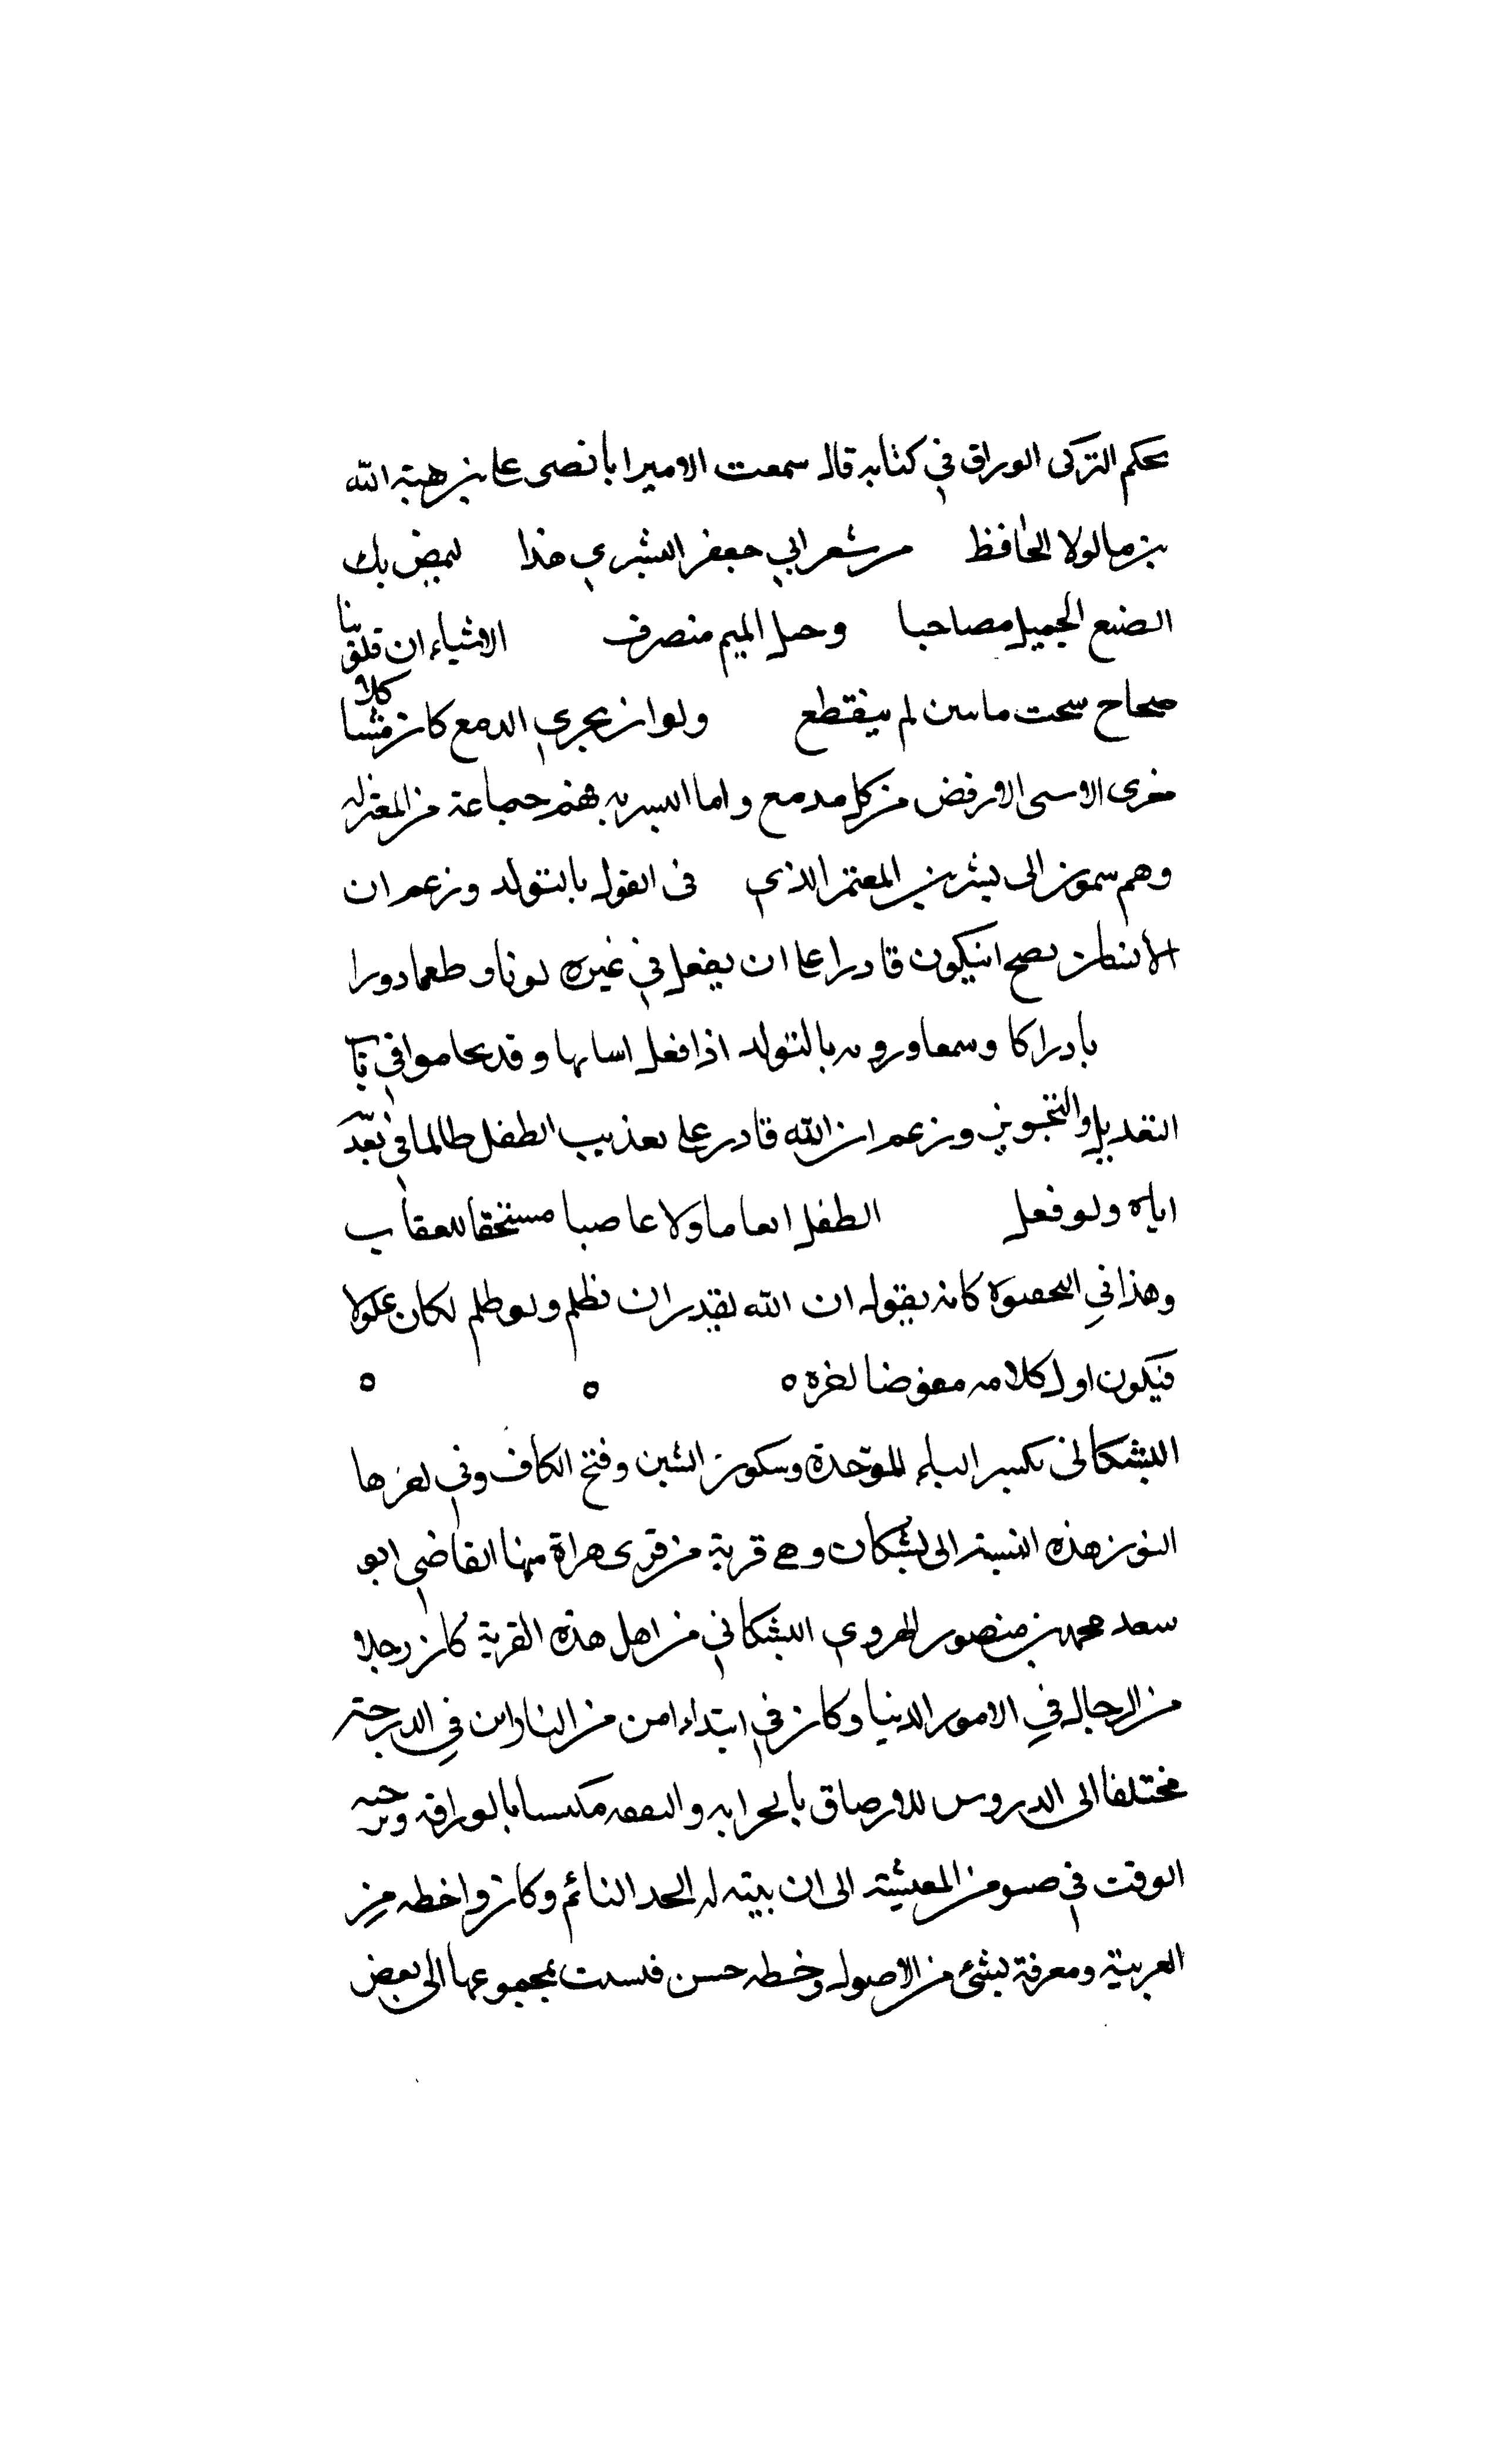 بحكم التركى الوراق في كتابه قال سمعت الامير ابا نصر على بن هبة الله
بن ماكولا الحافظ من شعر ابي جعفر البشري هذا ليمض بك
الصنع الجميل مصاحبا وحبل الميم منصرف الاشياء ان قلق بنا
صحاح سحت ما بين لم ينقطع ولو ان مجرى الدمع كان مشاكلا
مغرى الاسى الارفض من كل مدمع واما البسريه فهم جماعة من المعتزله
وهم سمون الى بشر بن المعتمر الذي في القول بالتولد وزعم ان
الانسان يصح انيكون قادرا على ان يفعل في غيره لونا وطعما دورا
بادراكا وسمعا ورويه بالتولد اذا فعل اسابها وقد تحاموا في باب
التعديل والتجويز وزعم ان الله قادر على تعذيب الطفل ظالما في تعذيبه
اياه ولو فعل الطفل العاما ولا عاصيا مستحقا للعقاب
وهذا في التحقيق كانه يقول ان الله يقدر ان يظلم ولو ظلم لكان عدلا
فيكون اول كلامه معوضا لخره ه ه ه
البشكانى بكسر الباء الموحدة وسكون الشين وفتح الكاف وفي اخرها
النون هذه النسبة الى بشكان وهى قرية من قرى هراة منها القاضي ابو
سعد محمد بن منصور الهروي البشكاني من اهل هذه القرية كان رجلا
من الرجال في الامور الدنيا وكان في ابتداء امن من النازلين في الدرجة
مختلفا الى الدروس للارصاق بالحرابه والنفقه مكتسبا بالوراقة وترجيه
الوقت في صسو من المعيشة الى ان بيته له الحد النائم وكان واخطه من
العربية ومعرفة بشئ من الاصول وخطه حسن فنسبت بمجموعها الى بعض